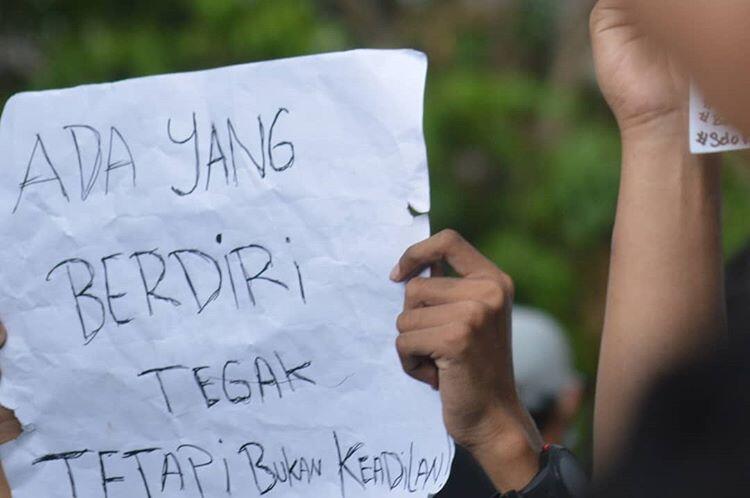 ADA YANG
BERDIRI
TEGAK
TETAPI BUKAN KEADILAN!